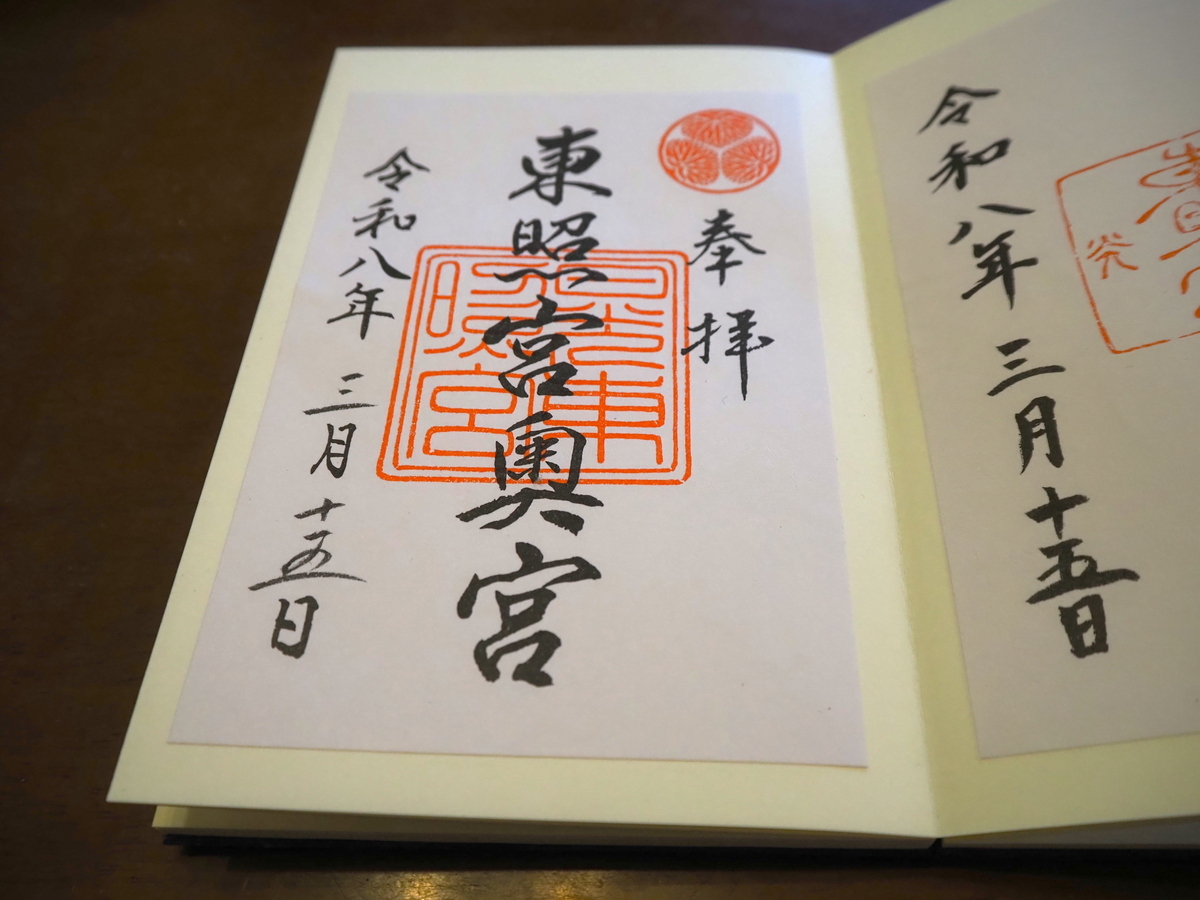 令和八年 三月十五日
奉拝
東照宮奥宮
令和八年 三月十五日